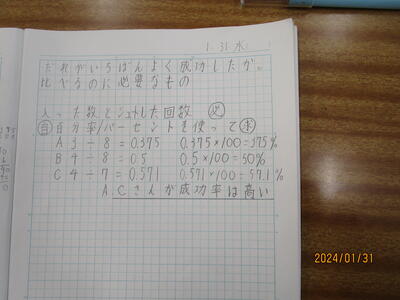 1.31 水
だれがいちばんよく成功したか。
比べるのに必要なもの
入った数とシュートした回数 必
自 百分率/パーセントを使って 求
A 3 ÷ 8 = 0.375 0.375×100=37.5%
B 4 ÷ 8 = 0.5 0.5×100=50%
C 4 ÷ 7 = 0.571 0.571×100=57.1%
A. Cさんが成功率は高い
2024/01/31